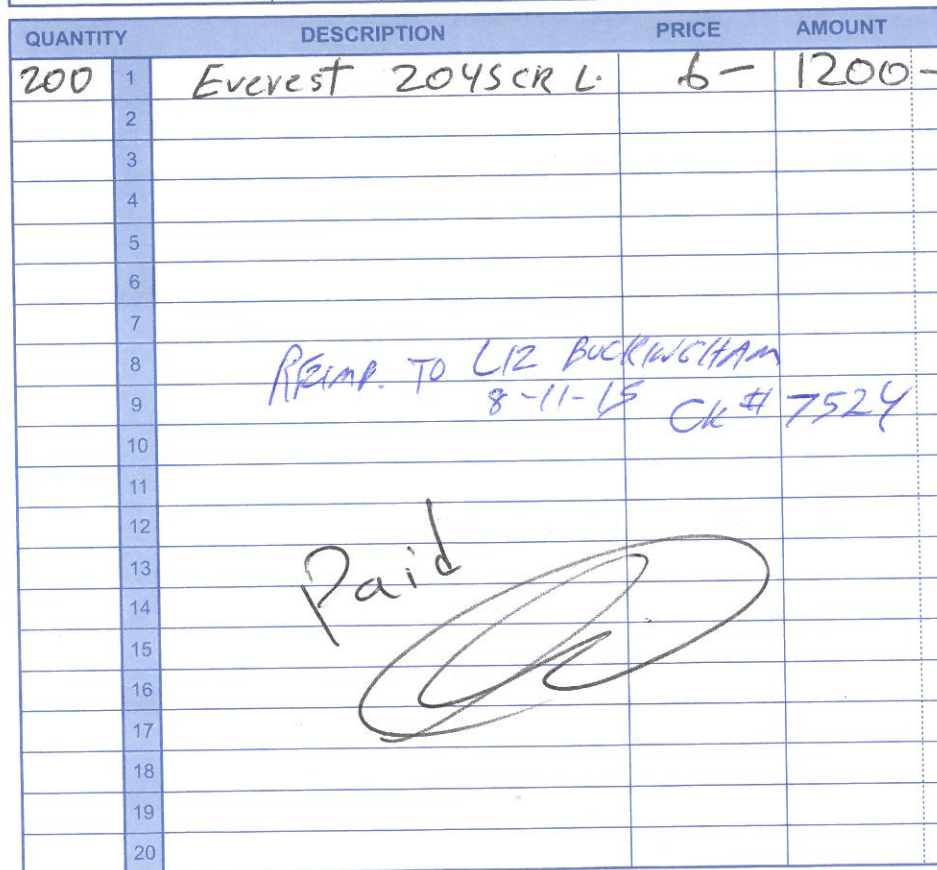 QUANTITY DESCRIPTION PRICE AMOUNT
200 1 Everest 204SCR L. 6- 1200-
2
3
4
5
6
7
8 REIMP. TO LIZ BUCKINGHAM
9 8-11-15 CK # 7524
10
11
12
13 Paid
14
15
16
17
18
19
20